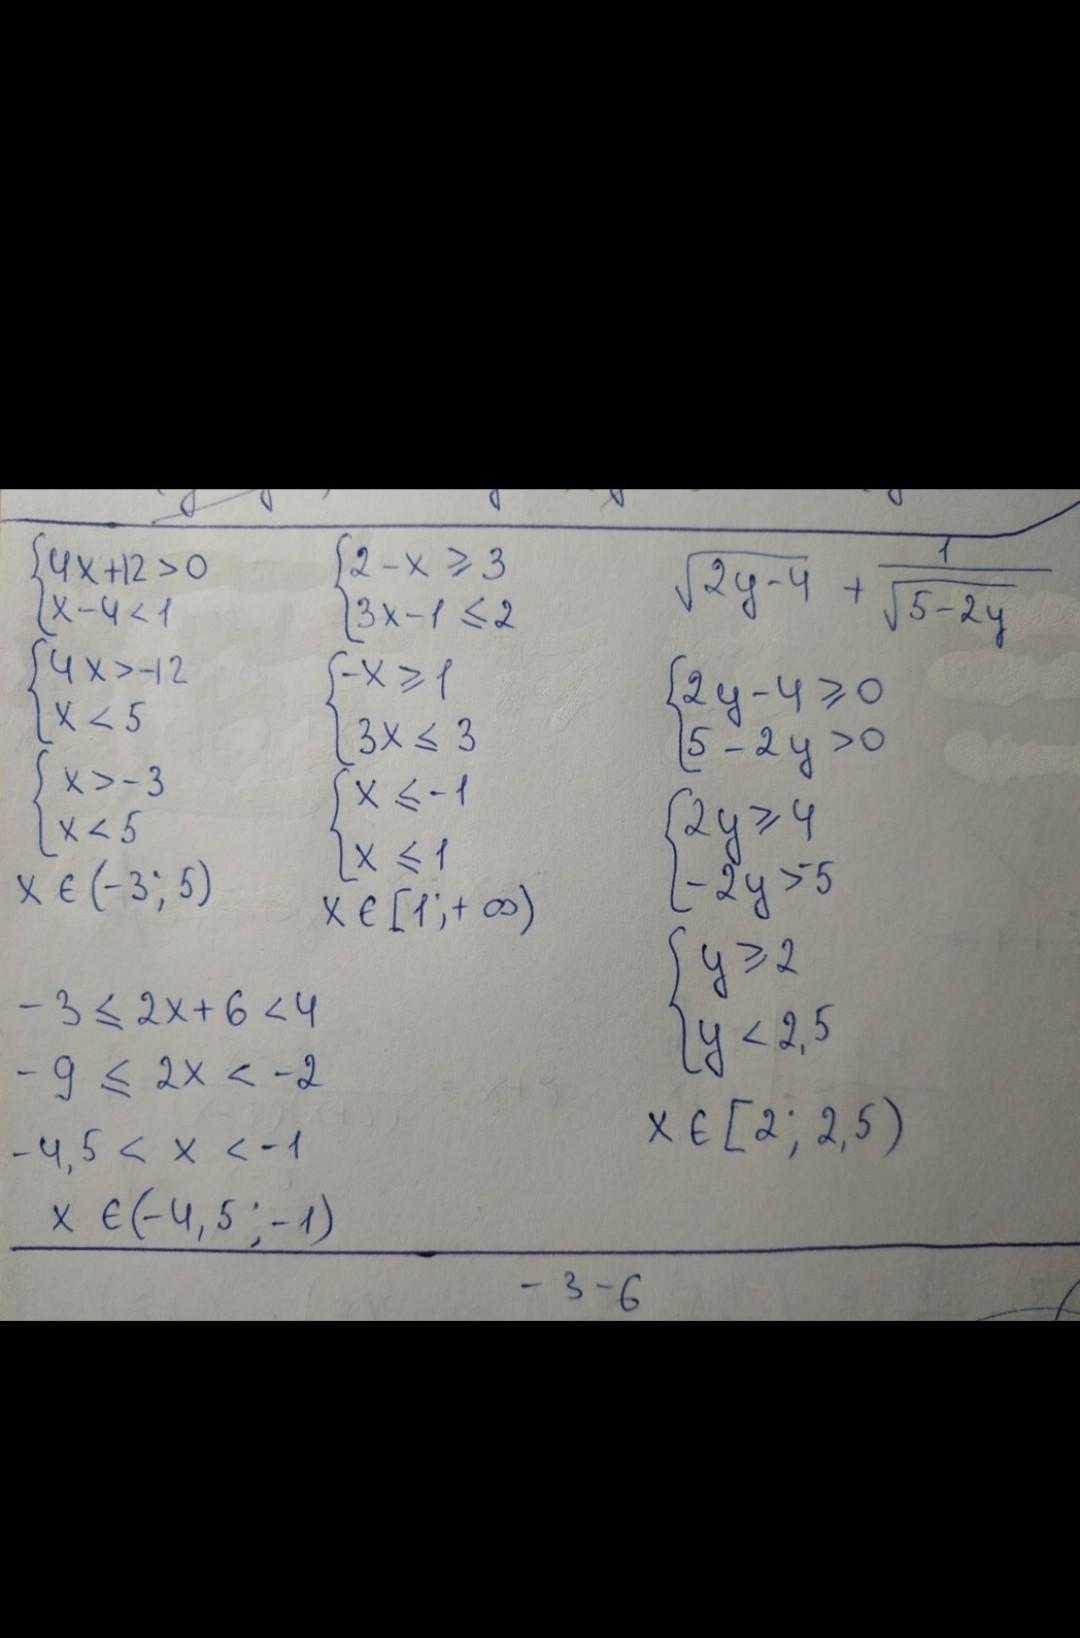 {4x+12>0
x-4<1
{4x>-12
x<5
{x>-3
x<5
x∈(-3;5)
{2-x⩾3
3x-1⩽2
{-x⩾1
3x⩽3
{x⩽-1
x⩽1
x∈[1;+∞)
√2y-4 + 1/√5-2y
{2y-4⩾0
5-2y>0
{2y⩾4
-2y>-5
{y⩾2
y<2,5
x∈[2;2,5)
-3⩽2x+6<4
-9⩽2x<-2
-4,5<x<-1
x∈(-4,5;-1)
-3-6